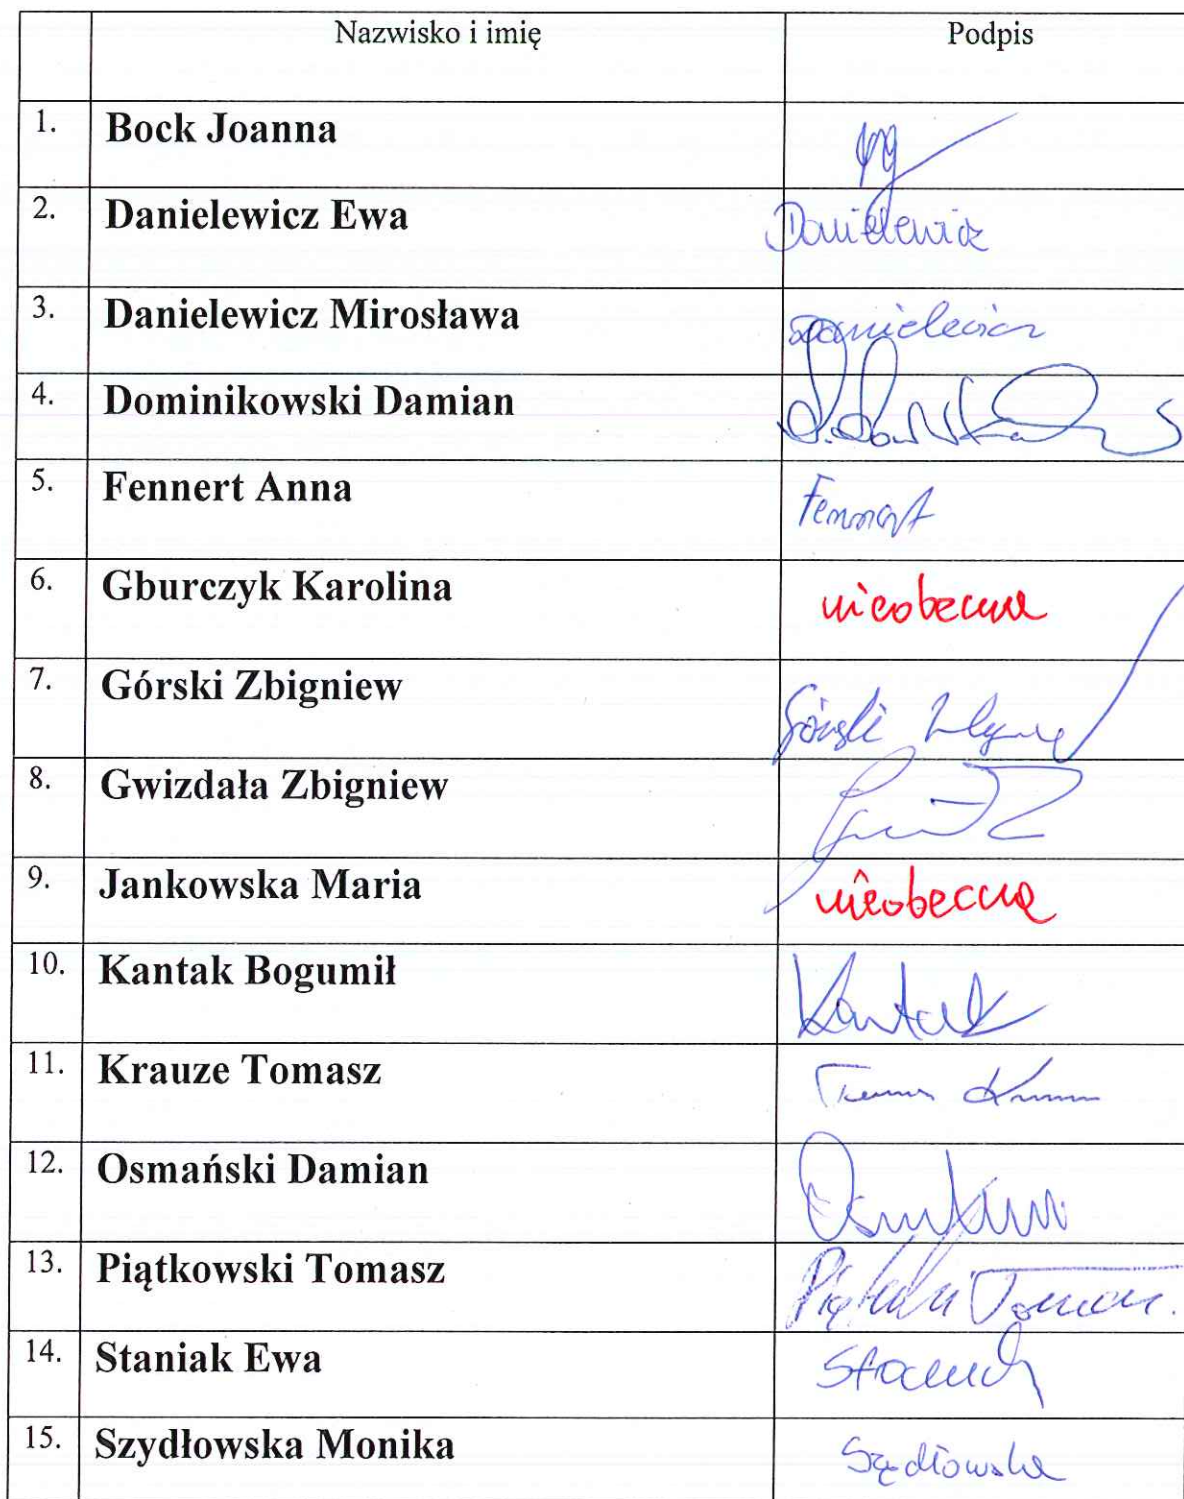 Nazwisko i imię Podpis
1. Bock Joanna
2. Danielewicz Ewa Danielewicz
3. Danielewicz Mirosława Danielewicz
4. Dominikowski Damian
5. Fennert Anna Fennert
6. Gburczyk Karolina nieobecna
7. Górski Zbigniew Górski
8. Gwizdała Zbigniew
9. Jankowska Maria nieobecna
10. Kantak Bogumił Kantak
11. Krauze Tomasz
12. Osmański Damian
13. Piątkowski Tomasz
14. Staniak Ewa
15. Szydłowska Monika Szydłowska